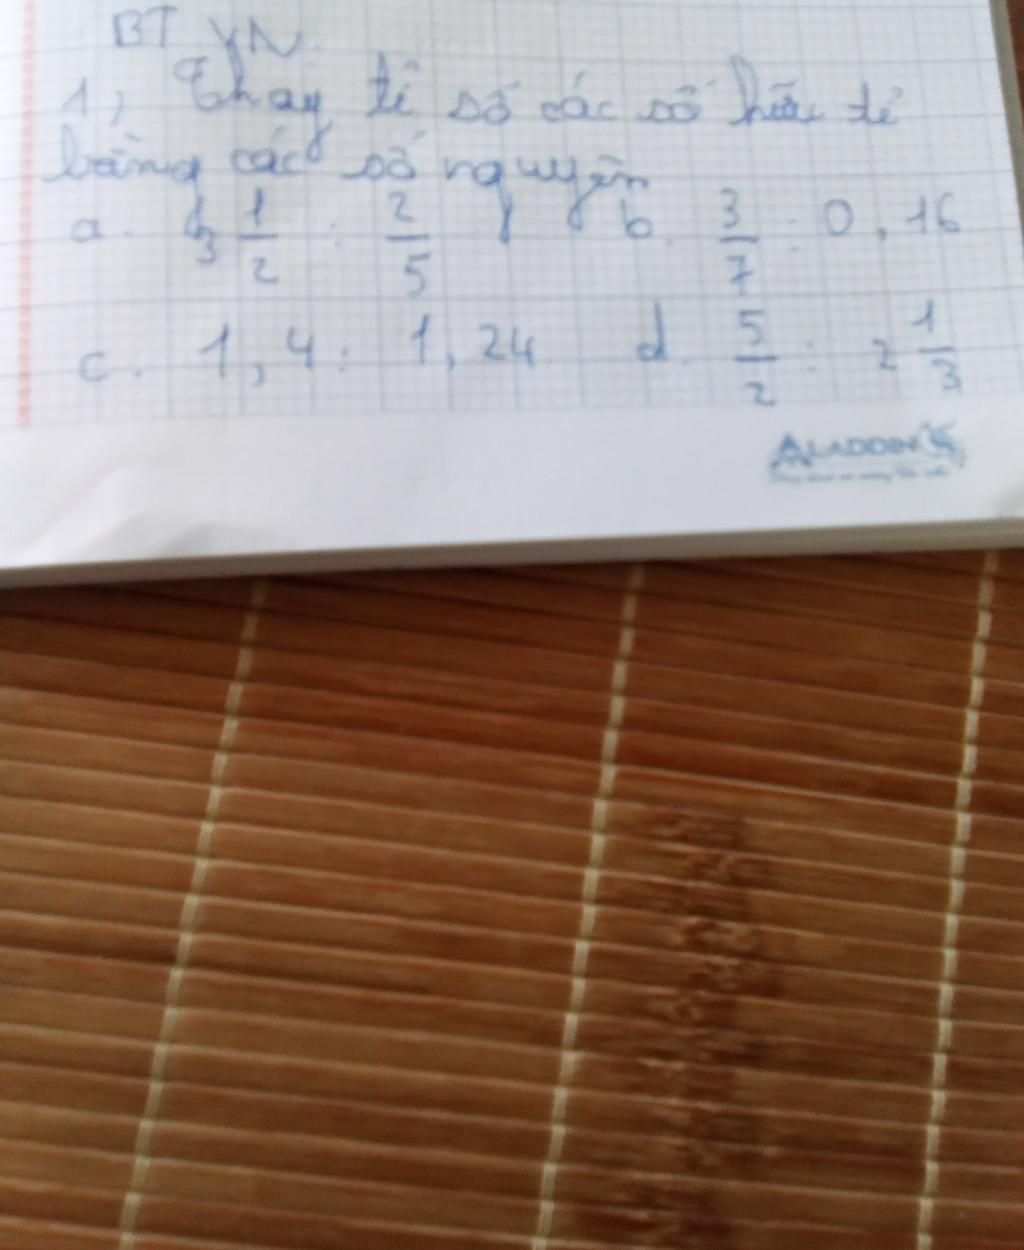 BT VN
1, Thay tỉ số các số hữu tỉ
bằng các số nguyên
a. 3 1/2 : 2/5 b. 3/7 : 0,16
c. 1,4 : 1,24 d. 5/2 : 2 1/3
ALADDIN